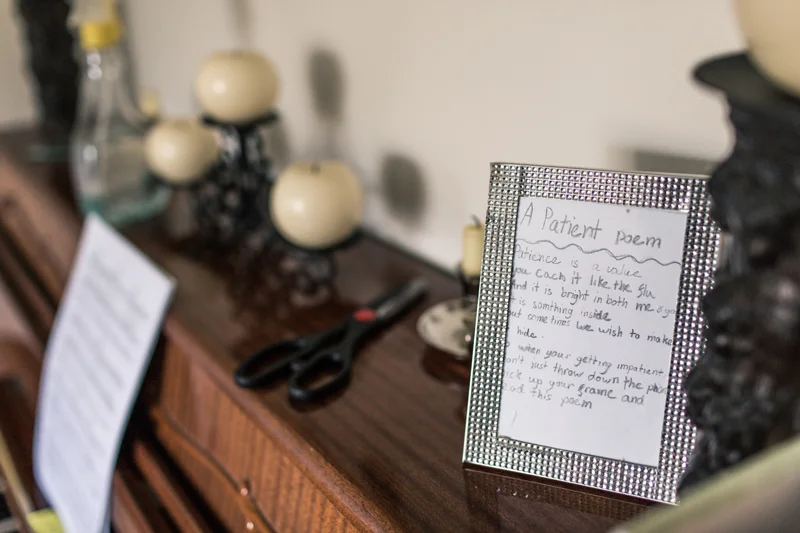 A Patient poem
Patience is a value
You cach it like the flu
And it is bright in both me & you
it is somthing inside
but sometimes we wish to make
hide.
when your getting impatient
don't just throw down the phone
pick up your frame and
read this poem